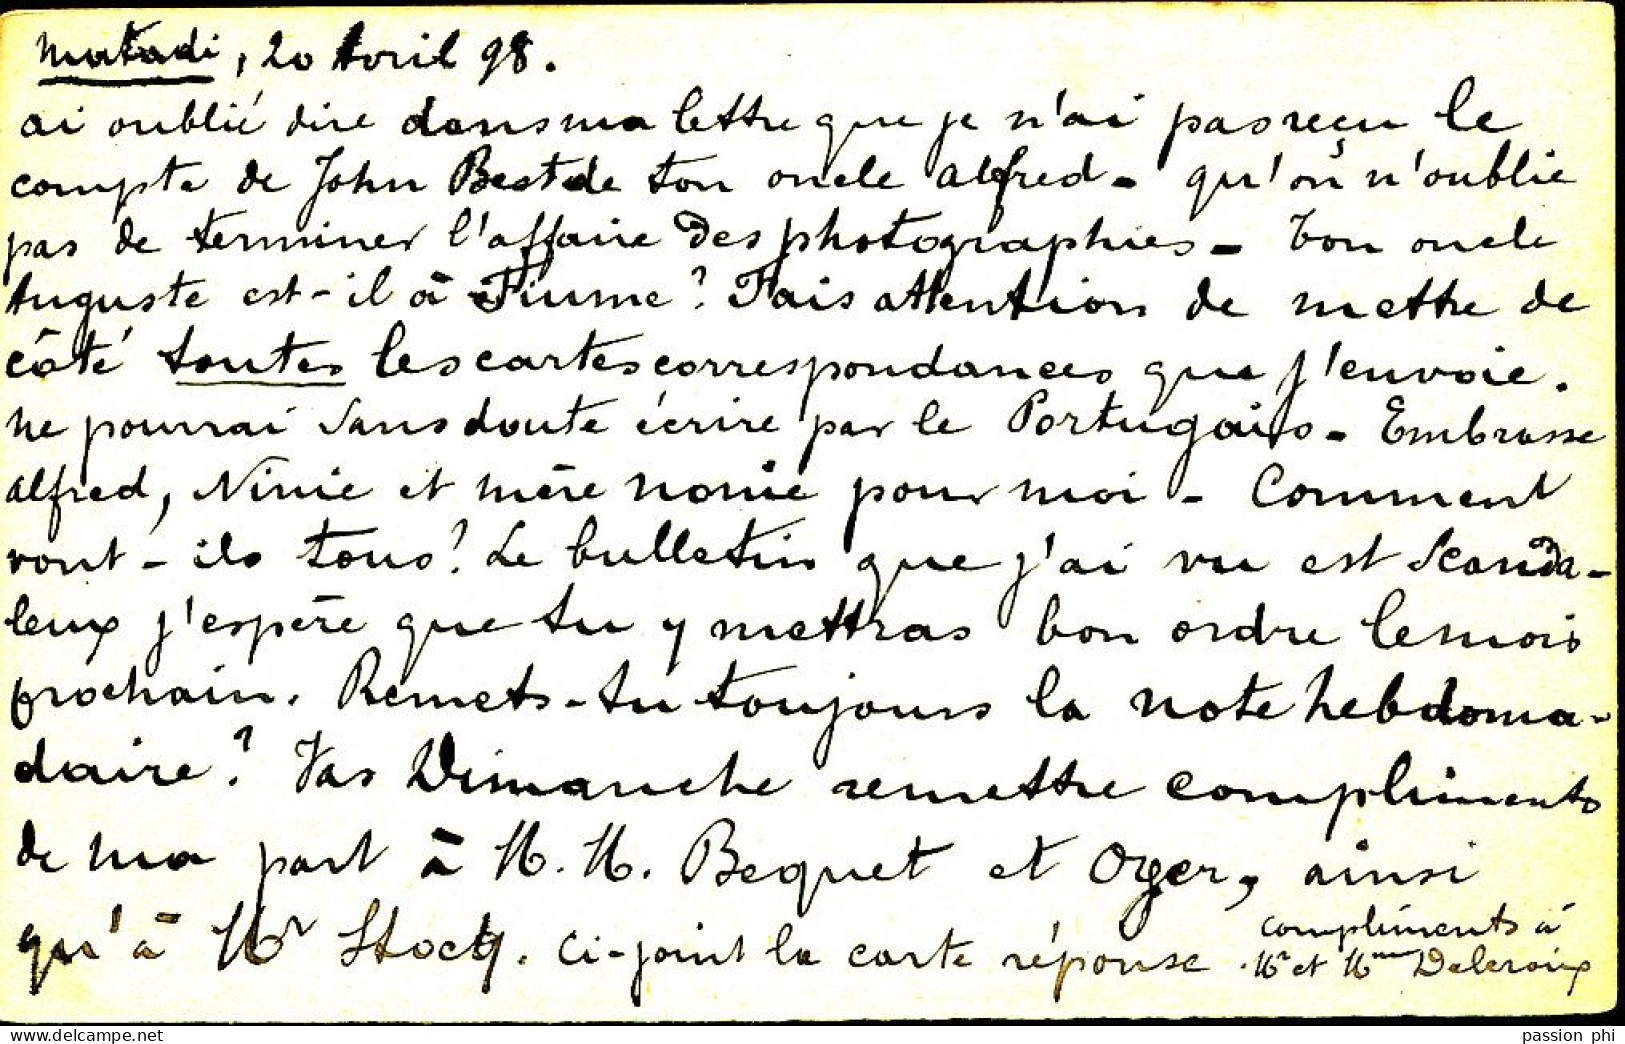 Matadi, 20 Avril 98.
ai oublié dire dans ma lettre que je n'ai pas reçu le
compte de John Best de ton oncle Alfred - qu'on n'oublie
pas de terminer l'affaire des photographies - Ton oncle
Auguste est-il à Fiume? Fais attention de mettre de
côté toutes les cartes correspondances que j'envoie.
ne pourrai sans doute écrire par le Portugais - Embrasse
Alfred, Ninie et mère nonie pour moi - Comment
vont-ils tous? Le bulletin que j'ai vu est Scanda-
leux j'espère que tu y mettras bon ordre le mois
prochain. Remets-tu toujours la note hebdoma-
daire? Vas Dimanche remettre compliments
de ma part à M. M. Bequet et Oger, ainsi
qu'à Mr. Ci-joint la carte réponse.
compliments à
Mr et Mme Delcroix
passion-liebhaberei.com
passion phi